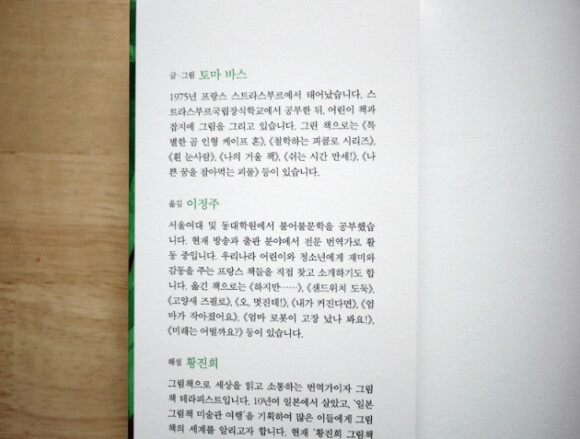 글·그림 토마 바스
1975년 프랑스 스트라스부르에서 태어났습니다. 스
트라스부르국립장식학교에서 공부한 뒤, 어린이 책과
잡지에 그림을 그리고 있습니다. 그린 책으로는 《특
별한 곰 인형 케이프 혼》, 《철학하는 피콜로 시리즈》,
《흰 눈사람》, 《나의 거울 책》, 《쉬는 시간 만세!》, 《나
쁜 꿈을 잡아먹는 괴물》 등이 있습니다.
옮김 이정주
서울여대 및 동대학원에서 불어불문학을 공부했습
니다. 현재 방송과 출판 분야에서 전문 번역가로 활
동 중입니다. 우리나라 어린이와 청소년에게 재미와
감동을 주는 프랑스 책들을 직접 찾고 소개하기도 합
니다. 옮긴 책으로는 《하지만……》, 《샌드위치 도둑》,
《고양새 즈필로》, 《오, 멋진데!》, 《내가 커진다면》, 《엄
마가 작아졌어요》, 《엄마 로봇이 고장 났나 봐요!》,
《미래는 어떨까요?》 등이 있습니다.
해설 황진희
그림책으로 세상을 읽고 소통하는 번역가이자 그림
책 테라피스트입니다. 10년여 일본에서 살았고, '일본
그림책 미술관 여행'을 기획하여 많은 이들에게 그림
책의 세계를 알리고자 합니다. 현재 '황진희 그림책